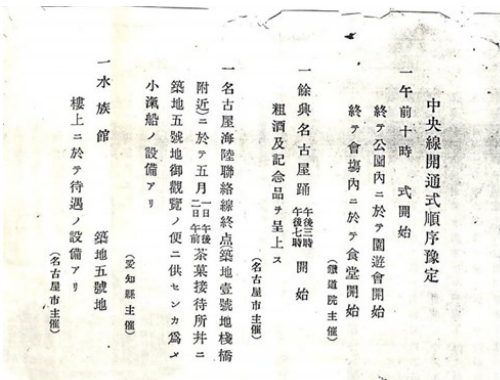 中央線開通式順序豫定
一午前十時 式開始
終テ公園内ニ於テ園遊會開始
終テ會塲内ニ於テ食堂開始
(鐵道院主催)
一餘興名古屋踊 午後三時 午後七時 開始
粗酒及記念品ヲ呈上ス
(名古屋市主催)
一名古屋海陸聯絡線終点築地壹號地棧橋
附近ニ於テ五月 一日午後 二日午前 茶菓接待所幷ニ
築地五號地御觀覽ノ便ニ供センカ爲メ
小滊船ノ設備アリ
(愛知縣主催)
一水族館 築地五號地
樓上ニ於テ待遇ノ設備アリ
(名古屋市主催)